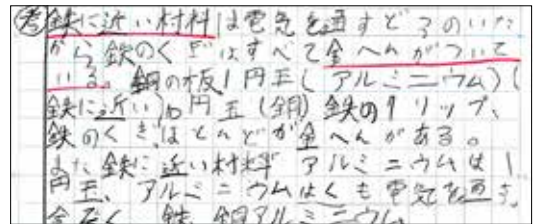 考 鉄に近い材料は電気を通す
から鉄のくぎはすべて金へんがついて
いる。銅の板1円玉(アルミニウム)(
鉄に近い)10円玉(銅)鉄のクリップ、
鉄のくぎ、ほとんどが金へんがある。
また鉄に近い材料 アルミニウムは1
円玉、アルミニウムはくも電気を通す。
金ぞく 鉄 銅アルミニウム